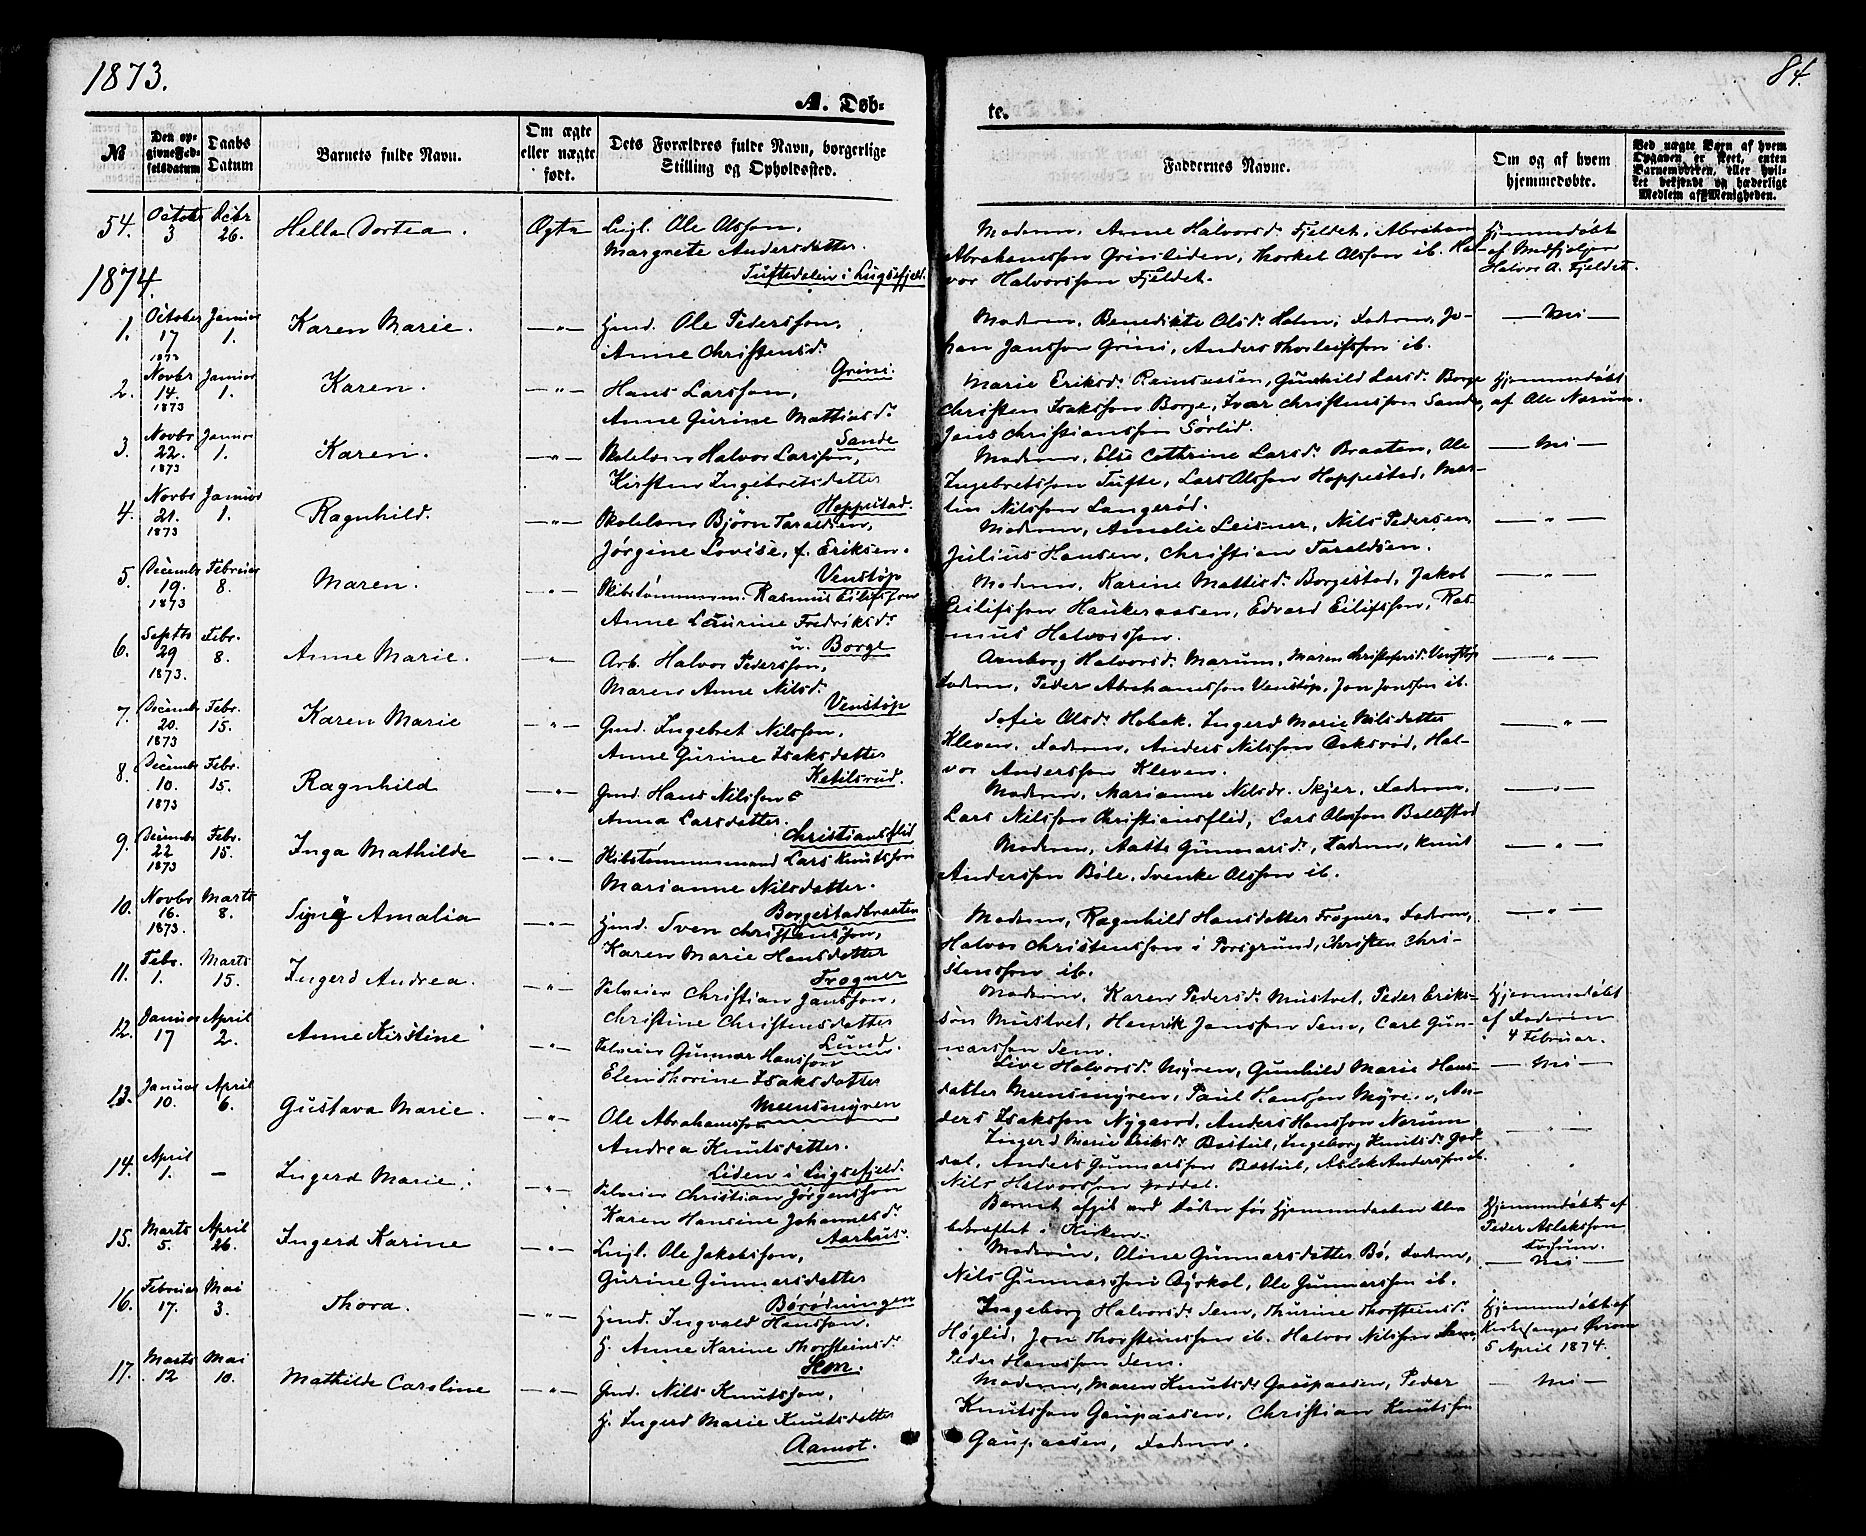 1873.
84.
A. Døb-
te.
№
Den op-
givne Fød-
selsdatum
Daabs
Datum
Barnets fulde Navn.
Om ægte
eller uægte
født.
Dets Forældres fulde Navn, borgerlige
Stilling og Opholdssted.
Faddernes Navne.
Om og af hvem
hjemmedøbte.
Ved uægte Børn af hvem
Opgaven er skeet, enten
Barnemoderen, eller hvil-
ket bekjendt og hæderligt
Medlem af Menigheden.
54. October 3 Dcbr 26. Hella Dortea. Ægte Leigl. Ole Olsson,
Margrete Andersdatter.
Tuftedalen i Luksefjeld.
Moderen, Anne Halvorsd. Fjeldet, Abraham
Abrahamsson Grinliden, Thorkel Olsson ib. Hal-
vor Halvorsson Fjeldet.
Hjemmedøbt
af
Halvor A. Fjeldet.
1874.
1. October 17 1873 Januar 1. Karen Marie. —"— Gmd. Ole Pedersson,
Anne Christensd.
Grini.
Moderen, Benedikte Olsd. Holm, Faderen, Jo-
han Jansson Grini, Anders Thorleifsson ib.
— Nei —
2. Novbr 14. 1873 Januar 1. Karen. —"— Hans Larsson,
Anne Gurine Mathiasd.
Sande
Marie Eriksd. Ramsaasen, Gunhild Larsd. Borge
Christen Isaksson Borge, Ivar Christensson Sande,
Jens Christiansson Sørlid.
Hjemmedøbt
af Ole Narum.
3. Novbr 22. 1873 Januar 1. Karen. —"— Skolelærer Halvor Larsson,
Kirsten Ingebretsdatter
Hoppestad.
Moderen, Else Cathrine Larsd. Braaten, Ole
Ingebretsson Tufte, Lars Olsson Hoppestad, Mar-
tin Nilsson Langerød.
— Nei —
4. Novbr 21. 1873 Januar 1. Ragnhild. —"— Skolelærer Bjørn Taraldsen,
Jørgine Lovise, f. Eriksen.
Venstøp
Moderen, Amalie Leisner, Nils Pedersen,
Julius Hansen, Christian Taraldsen.
— " —
5. Decembr 19. 1873 Februar 8. Maren. —"— Skibstømmerm. Rasmus Eilifsson
Anne Laurine Fredriksd.
u. Borge
Moderen, Karine Mattisd. Borgestad, Jakob
Eilifsson Haukeraasen, Edvard Eilifsson, Ras-
mus Halvorsson.
— " —
6. Septbr 29 1873. Febr. 8. Anne Marie. —"— Arb. Halvor Pedersson,
Maren Anne Nilsd.
Venstøp
Aanborg Halvorsd. Marum, Maren Christofersd. Venstøp
Faderen, Peder Abrahamsson Venstøp, Jon Jonsson ib.
— " —
7. Decembr 20. 1873 Febr. 15. Karen Marie —"— Gmd. Ingebret Nilsson,
Anne Gurine Isaksdatter
Ketilsrud.
Sofie Olsd. Hobæk, Ingerd Marie Nilsdatter
Kleven, Faderen, Anders Nilsson Aaksrød, Hal-
vor Andersson Kleven.
— " —
8. Decembr 10. 1873 Febr. 15. Ragnhild —"— Gmd. Hans Nilsson
Anna Larsdatter.
Christianslid
Moderen, Marianne Nilsdr. Skjer, Faderen,
Lars Nilsson Christianslid, Lars Olsson Bollestad
— " —
9. Decembr 22 1873 Febr. 15. Inga Mathilde —"— Skibstømmermand Lars Knutsson
Marianne Nilsdatter.
Borgestadbraaten
Moderen, Aaste Gunnarsd., Faderen, Knut
Andersson Bøle, Svenke Olsson ib.
— " —
10. Novbr 16. 1873. Marts 8. Signy Amalia —"— Gmd. Sven Christensson,
Karen Marie Hansdatter
Frogner
Moderen, Ragnhild Hansdatter Frogner, Faderen,
Halvor Christensson i Porsgrund, Christen Chri-
stensson ib.
— " —
11. Febr. 1. Marts 15. Ingerd Andrea. —"— Selveier Christian Jansson,
Christine Christensdatter
Lund.
Moderen, Karen Pedersd. Mustvet, Peder Eriks-
søn Mustvet, Henrik Jansson Sem, Carl Gun-
narsson Sem.
Hjemmedøbt
af Faderen
4 Februar.
12. Januar 17 April 2. Anne Kirstine —"— Selveier Gunnar Hansson
Elen Thorine Isaksdatter
Meensmyren
Live Halvorsd. Myren, Gunhild Marie Hans-
datter Meensmyren, Paul Hansson Myren, An-
ders Isaksson Nygaard, Anders Hansson Narum
— Nei —
13. Januar 10. April 6. Gustava Marie. —"— Ole Abrahamsson
Andrea Knutsdatter.
Liden i Luksefjeld.
Ingerd Marie Eriksd. Bestul, Ingeborg Knutsd. God-
dal, Anders Gunnarsson Bestul, Aslak Andersson ib.
Nils Halvorsson Goddal.
— " —
14. April 1. — Ingerd Marie. —"— Selveier Christian Jørgensson
Karen Hansine Johannesd.
Aarhus.
Barnet afgik ved Døden før Hjemmedaaben blev
bekræftet i Kirken.
Hjemmedøbt af
Peder Aslaksson
Fossum.
15. Marts 5. April 26. Ingerd Karine —"— Leigl. Ole Jakobsson,
Gurine Gunnarsdatter
Børødningen
Moderen, Oline Gunnarsdatter Bø, Faderen,
Nils Gunnarsson Ørskol, Ole Gunnarsson ib.
— Nei —
16. Februar 17. Mai 3. Thora. —"— Gmd. Ingvald Hansson,
H. Anne Karine Thorsteinsd.
Sem.
Ingeborg Halvorsd. Sem, Thurine Thorsteinsd.
Høglid, Jon Thorsteinsson ib. Halvor Nilsson Sem,
Peder Hansson Sem.
Hjemmedøbt af
Kirkesanger
5 April 1874.
17. Marts 12 Mai 10. Mathilde Caroline —"— Gmd. Nils Knutsson,
H. Ingerd Marie Knutsdatter
Aamot.
Moderen, Maren Knutsd. Gaupaasen, Peder
Knutsson Gaupaasen, Christian Knutsson
Gaupaasen, Faderen.
— Nei —